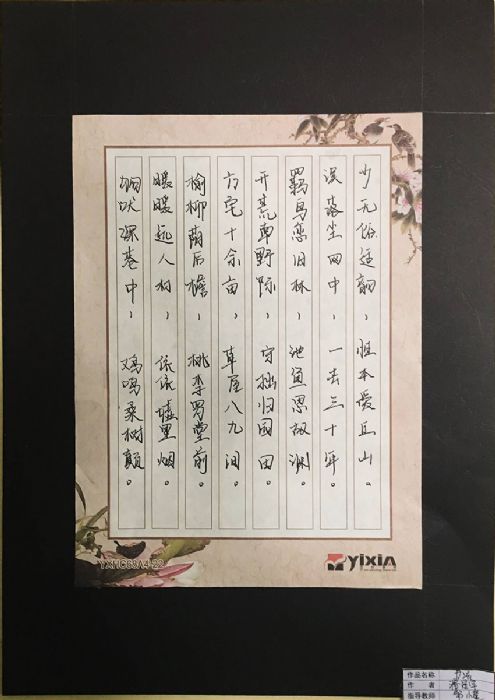 少无俗适韵，性本爱丘山。
误落尘网中，一去三十年。
羁鸟恋旧林，池鱼思故渊。
开荒南野际，守拙归园田。
方宅十余亩，草屋八九间。
榆柳荫后檐，桃李罗堂前。
暧暧远人村，依依墟里烟。
狗吠深巷中，鸡鸣桑树颠。
YXHC68A4-22
YiXiA
作品名称
作 者
指导教师